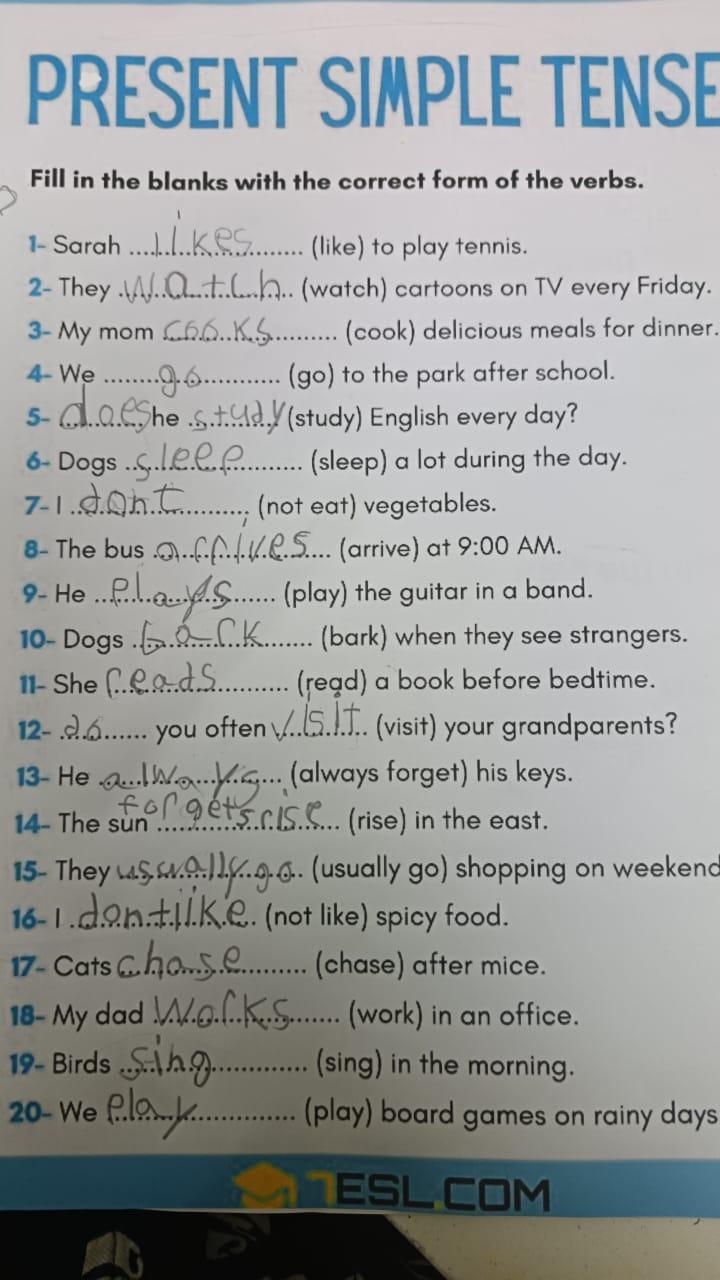 PRESENT SIMPLE TENSE
Fill in the blanks with the correct form of the verbs.
1- Sarah ....likes........ (like) to play tennis.
2- They .watch.. (watch) cartoons on TV every Friday.
3- My mom cooks.......... (cook) delicious meals for dinner.
4- We ........go............ (go) to the park after school.
5- does he .study (study) English every day?
6- Dogs ..sleep......... (sleep) a lot during the day.
7- I ..dont........... (not eat) vegetables.
8- The bus .arrives.... (arrive) at 9:00 AM.
9- He ..plays...... (play) the guitar in a band.
10- Dogs .bark....... (bark) when they see strangers.
11- She reads........... (read) a book before bedtime.
12- .do...... you often visit.. (visit) your grandparents?
13- He .always... (always forget) his keys.
forgets
14- The sun ...........rise... (rise) in the east.
15- They usually go.. (usually go) shopping on weekend
16- I .dont like. (not like) spicy food.
17- Cats chase......... (chase) after mice.
18- My dad works....... (work) in an office.
19- Birds ..sing............. (sing) in the morning.
20- We play.............. (play) board games on rainy days
7ESL.COM